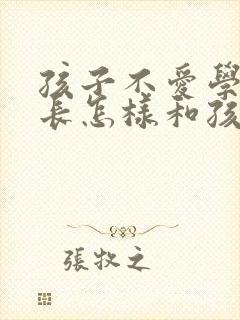 孩子不愛學
長怎樣和孩
張牧之